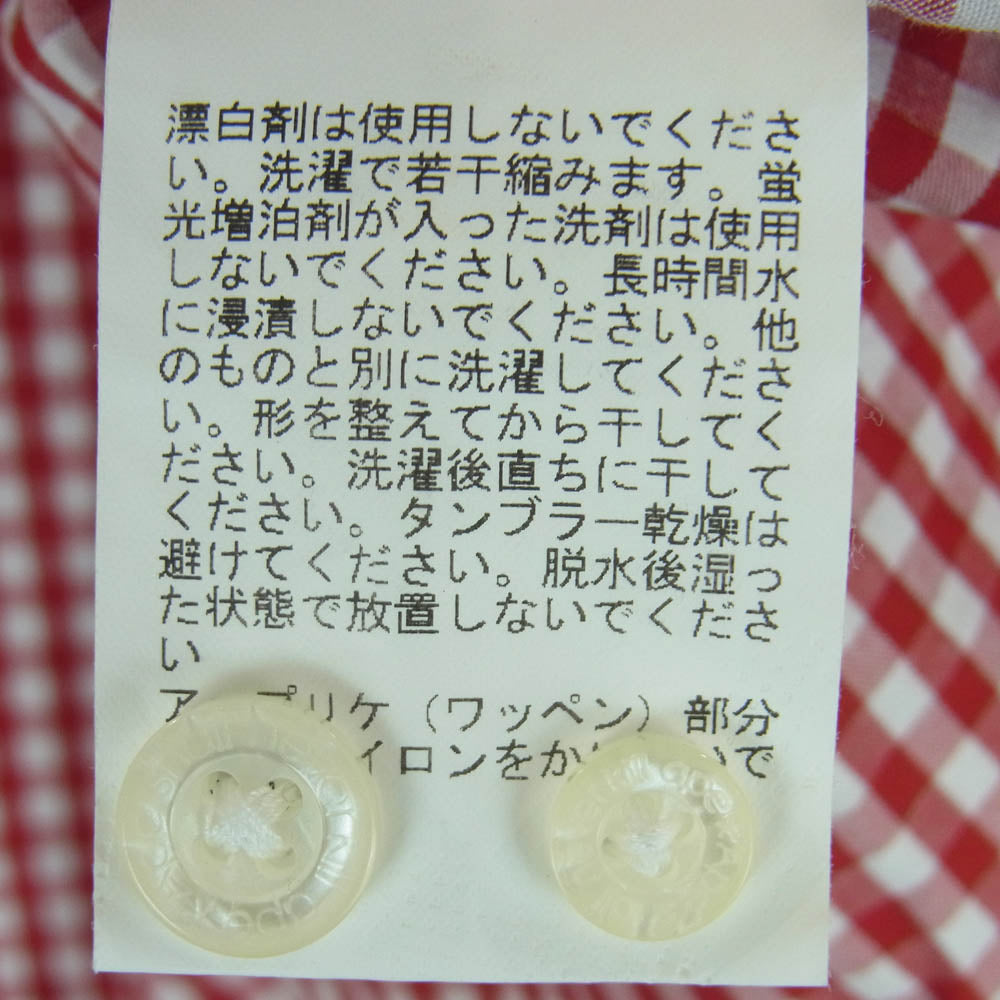 漂白剤は使用しないでくださ
い。洗濯で若干縮みます。蛍
光増泊剤が入った洗剤は使用
しないでください。長時間水
に浸漬しないでください。他
のものと別に洗濯してくださ
い。形を整えてから干してく
ださい。洗濯後直ちに干して
ください。タンブラー乾燥は
避けてください。脱水後湿っ
た状態で放置しないでくださ
い
プリケ（ワッペン）部分
イロンをか いで